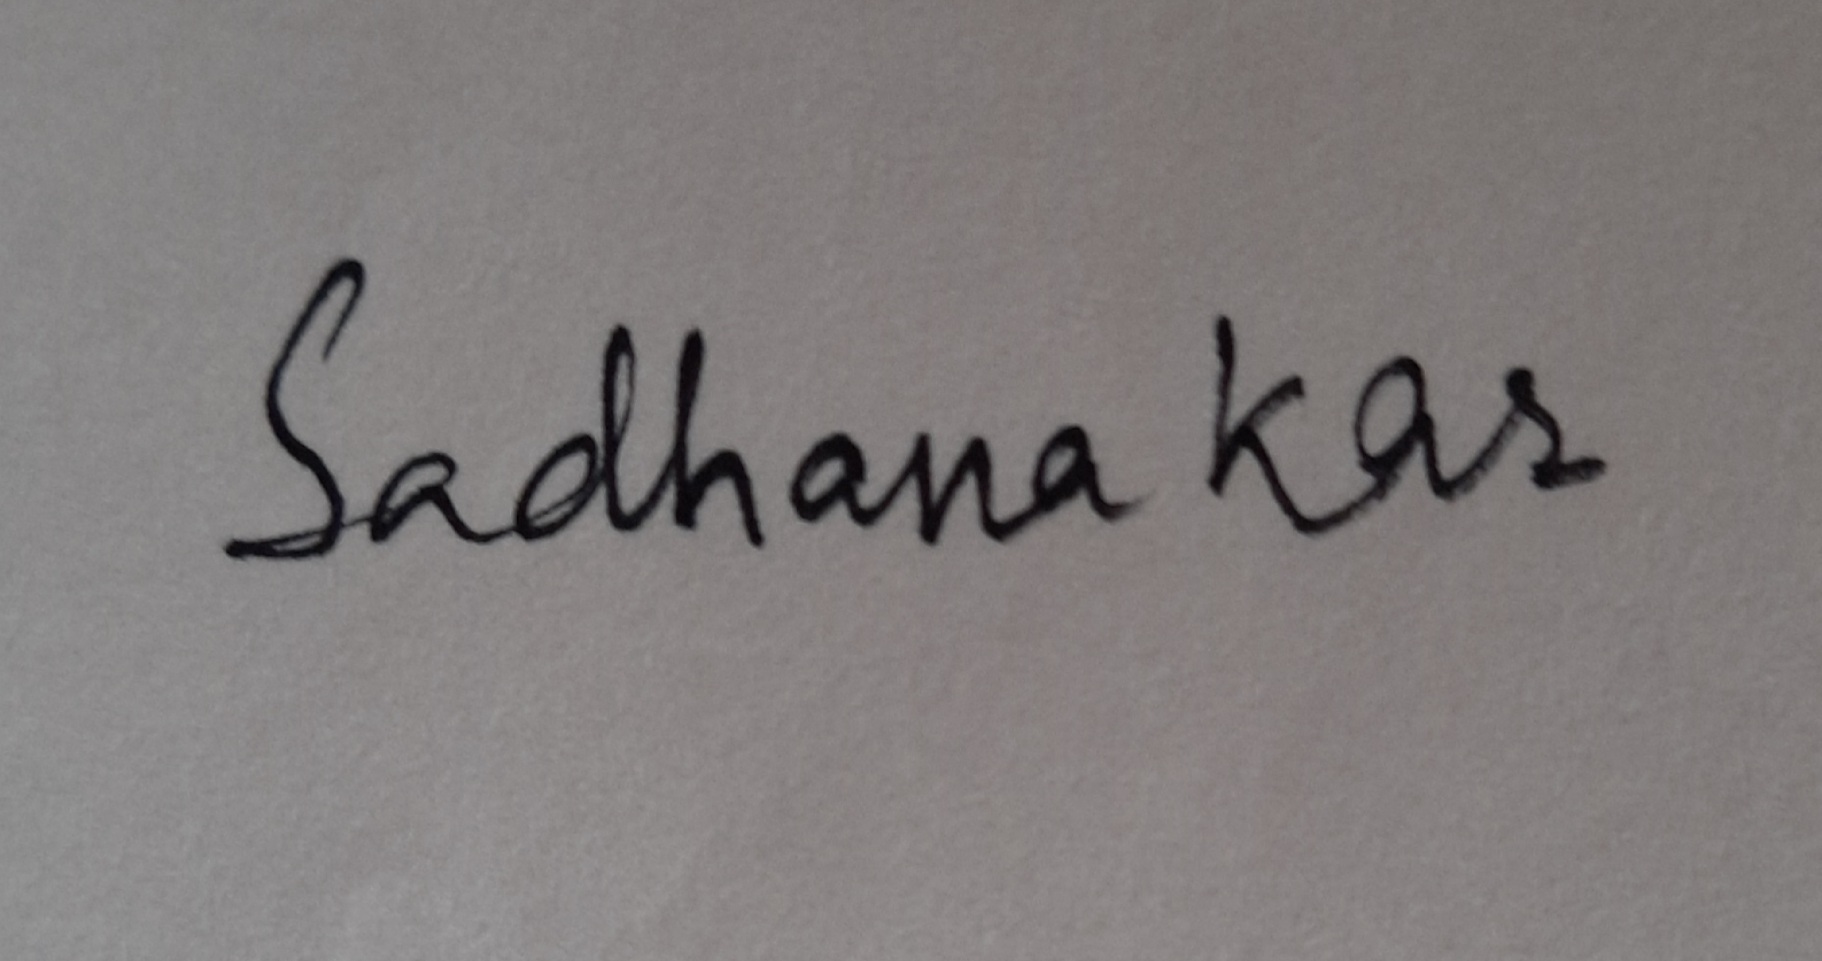 Sadhana Kar